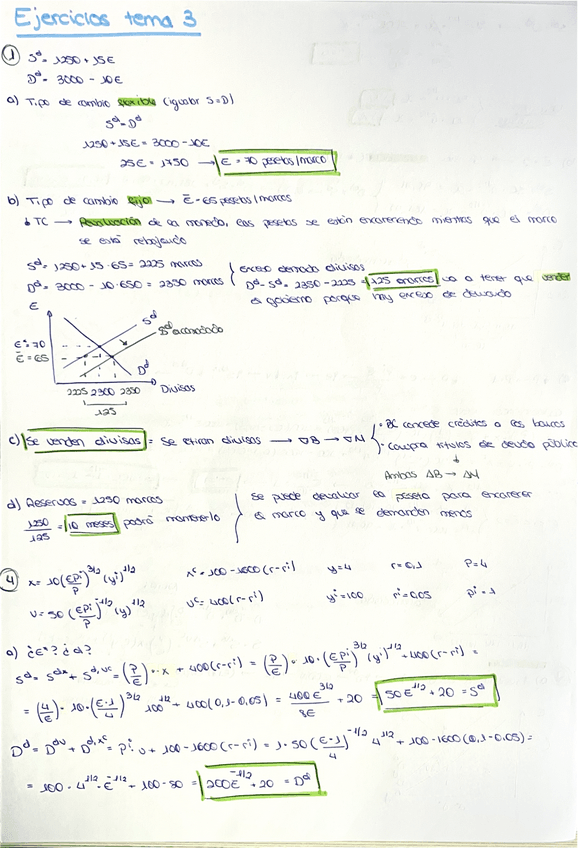 Ejercicios tema 3
1 Sd = 1250 + 15E
Dd = 3000 - 10E
a) Tipo de cambio flexible (igualar S=D)
Sd = Dd
1250 + 15E = 3000 - 10E
25E = 1750 → E = 70 pesetas/marco
b) Tipo de cambio fijo → Ē = 65 pesetas/marcos
↓ TC → Revaluación de la moneda, las pesetas se están encareciendo mientras que el marco
se está rebajando
Sd = 1250 + 15 · 65 = 2225 marcos
Dd = 3000 - 10 · 650 = 2350 marcos
exceso demanda divisas
Dd - Sd = 2350 - 2225 = 125 marcos va a tener que vender
el gobierno porque hay exceso de demanda
E
Sd
Sd acomodado
E* = 70
Ē = 65
Dd
Divisas
2225 2300 2350
125
c) Se venden divisas = Se retiran divisas → ∇B → ∇M
· BC concede créditos a los bancos
· Compra títulos de deuda pública
↓
Ambas ΔB → ΔM
d) Reservas = 1250 marcos
1250/125 = 10 meses podrá mantenerlo
Se puede devaluar la peseta para encarecer
el marco y que se demanden menos
4 x = 10(EPi/P)^3/2 (yi)^1/2 xc = 100 - 1600(r - ri) y = 4 r = 0,1 P = 4
v = 50(EPi/P)^-1/2 (y)^1/2 vc = 400(r - ri) yi = 100 ri = 0,05 pi = 1
a) ¿E*? ¿d?
Sd = Sdx + Sd,vc = (P/E) · x + 400(r - ri) = (P/E) · 10 · (EPi/P)^3/2 (yi)^1/2 + 400(r - ri) =
= (4/E) · 10 · (E·1/4)^3/2 100^1/2 + 400(0,1 - 0,05) = 400E^3/2/8E + 20 = 50E^1/2 + 20 = Sd
Dd = Ddv + Dd,xc = Pi · v + 100 - 1600(r - ri) = 1 · 50(E·1/4)^-1/2 4^1/2 + 100 - 1600(0,1 - 0,05) =
= 100 · 4^1/2 · E^-1/2 + 100 - 80 = 200E^-1/2 + 20 = Dd